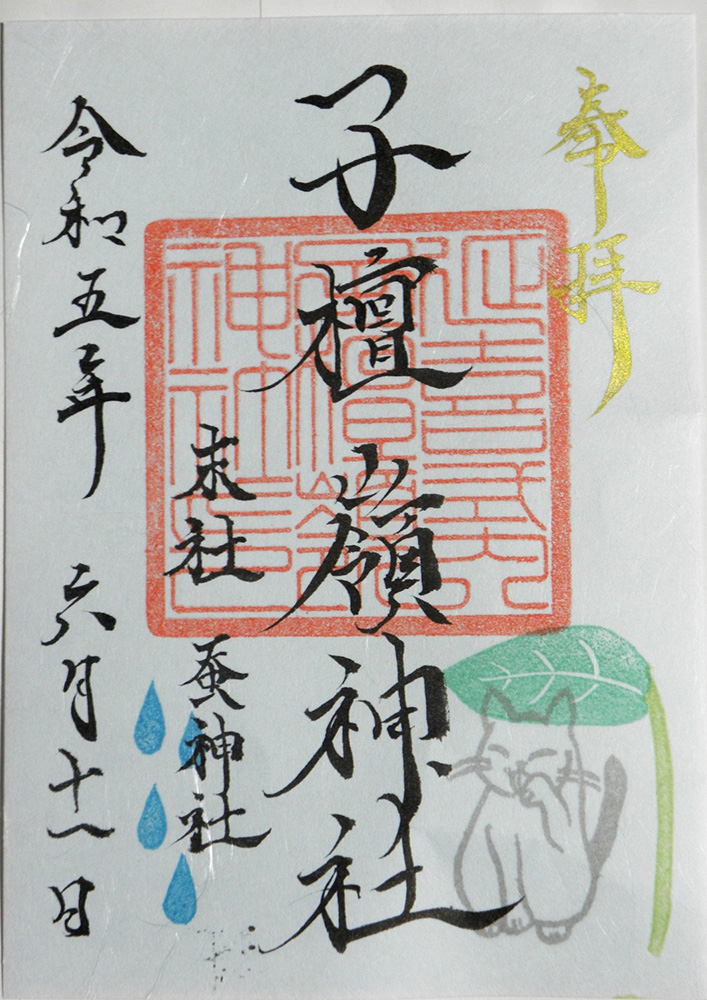 奉拝
延喜式内
子檀嶺神社
末社
蚕神社
令和五年 六月十一日